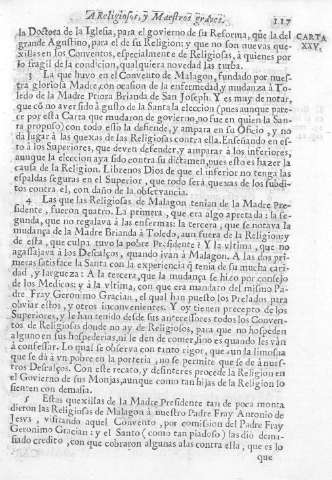 A Religiosos, y Maestros graves. 117
CARTA XXV.
la Doctora de la Iglesia, para el govierno de su Reforma, que la del
grande Agustino, para el de su Religion: y que no son nuevas que-
xillas en los Conventos, especialmente de Religiosas, à quienes por
lo fragil de la condicion, qualquiera novedad las turba.
3 La que huvo en el Convento de Malagon, fundado por nues-
tra gloriosa Madre, con ocasion de la enfermedad, y mudança à To-
ledo de la Madre Priora Brianda de San Joseph. Y es muy de notar,
que cõ no aver sido à gusto de la Santa la eleccion (pues aunque pare-
ce por esta Carta que mudaron de govierno, no fue en quien la San-
ta propuso) con todo esso la defiende, y ampara en su Oficio, y no
da lugar à las quexas de las Religiosas contra ella. Enseñando en es-
to à los Superiores, que deven defender, y amparar à los inferiores,
aunque la eleccion aya sido contra su dictamen, pues esto es hazer la
causa de la Religion. Librenos Dios de que el inferior no tenga las
espaldas seguras en el Superior, que todo serà quexas de los subdi-
tos contra el, con daño de la observancia.
4 Las que las Religiosas de Malagon tenian de la Madre Pre-
sidente, fueron quatro. La primera, que era algo apretada: la se-
gunda, que no regalava à las enfermas: la tercera, que se notava la
mudança de la Madre Brianda à Toledo, aun fuera de la Religion: y
de esta, que culpa tuvo la pobre Presidente? Y la vltima, que no
agassajava à los Descalços, quando ivan à Malagon. A las dos pri-
meras satisface la Santa con la experiencia q̃ tenia de su mucha cari-
dad, y largueza: A la tercera, que la mudança se hizo por consejo
de los Medicos: y à la vltima, con que era mandato del mismo Pa-
dre Fray Geronimo Gracian, el qual hàn puesto los Prelados para
obviar estos, y otros inconvenientes. Y oy tienen precepto de los
Superiores, y le han tenido desde sus antecessores todos los Conven-
tos de Religiosas donde no ay de Religiosos, para que no hospeden
alguno en sus hospederias, ni le den de comer, sino es quando les vàn
à confessar. Lo qual se observa con tanto rigor, que aun la limosna
que se dà à vn pobre en la porteria, no se permite que se dè à nues-
tros Descalços. Con este recato, y desinteres procede la Religion en
el Govierno de sus Monjas, aunque como tan hijas de la Religion lo
sienten con demasia.
5 Estas quexillas de la Madre Presidente tan de poca monta
dieron las Religiosas de Malagon à nuestro Padre Fray Antonio de
Jesvs, visitando aquel Convento, por comission del Padre Fray
Geronimo Gracian: y el Santo (como tan piadoso) las diò dema-
siado credito, con que cobraron algunas alas contra ella, que es lo
que